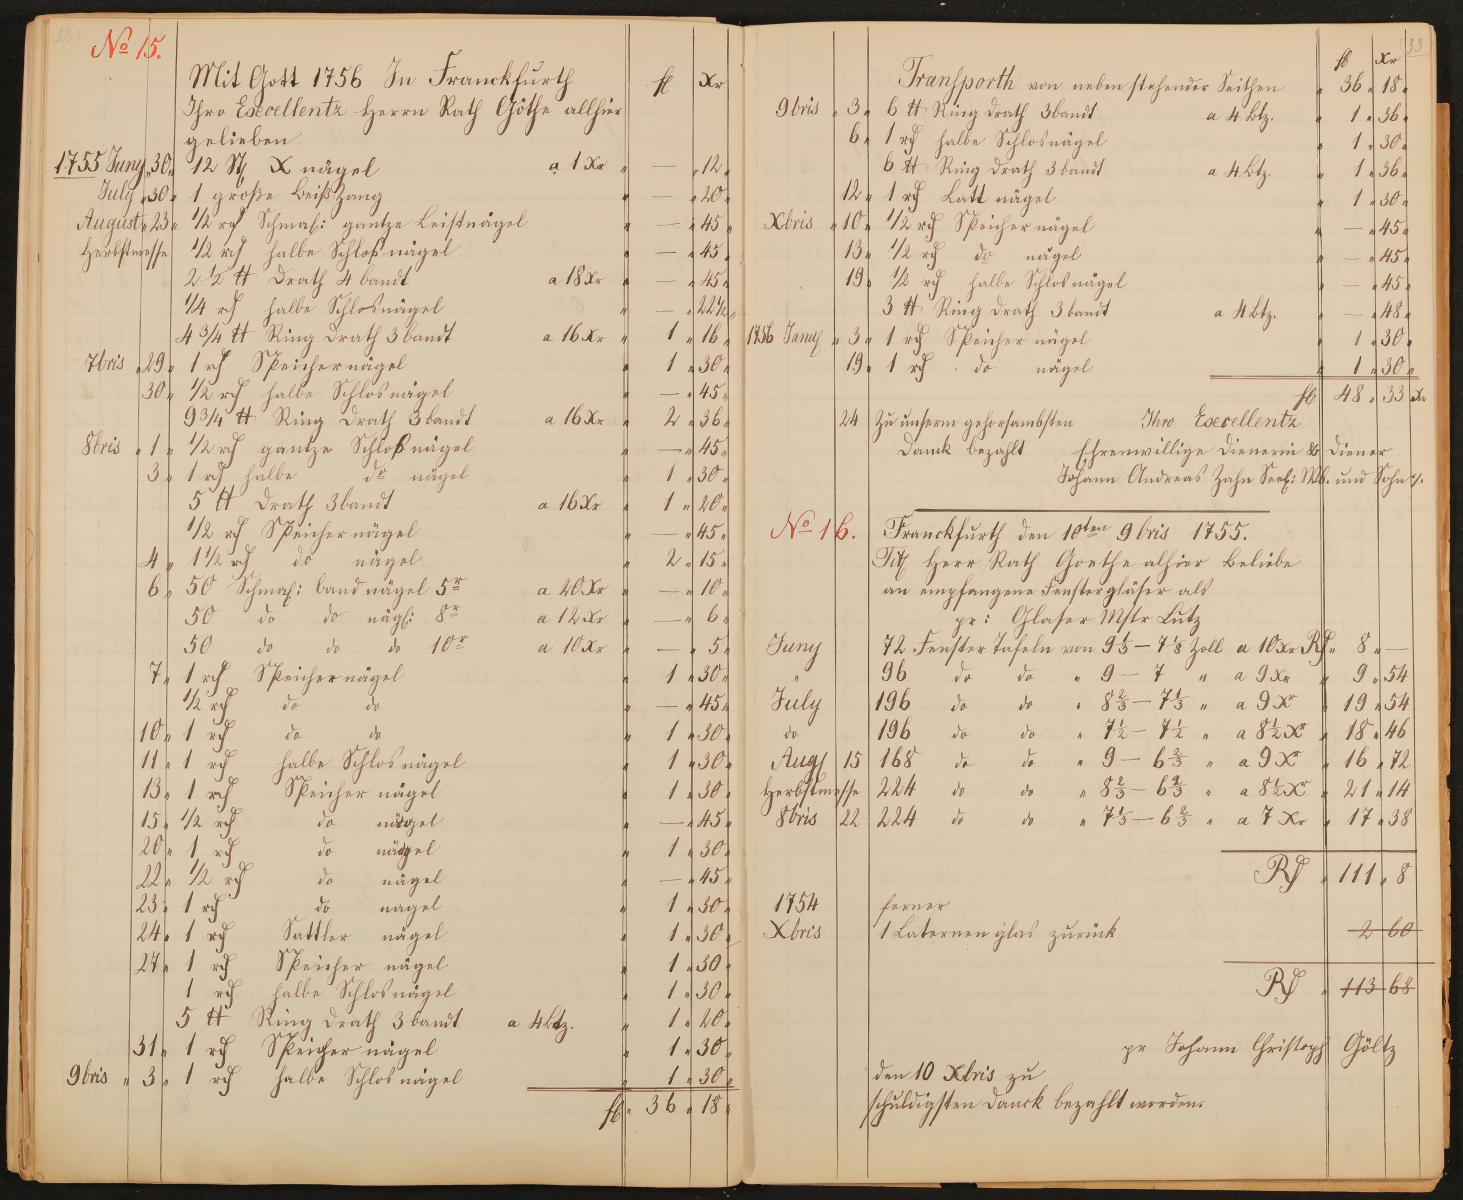 32.
No 15.
Mit Gott 1756 In Franckfurth fl Xr
Ihro Excellentz Herrn Rath Göthe allhier
gelieben
1755 Juny 30. 12 St X nägel a 1 Xr — 12
July 30 1 große Beißzang — 20
August 23 1/2 rch Schmal: gantze Leistnägel — 45
Herbstmesse 1/2 rch halbe Schlosnägel — 45
2 1/2 tt Drath 4 bandt a 18 Xr — 45
1/4 rch halbe Schlosnägel — 22 1/2
4 3/4 tt Ring Drath 3 bandt a 16 Xr 1 16
7bris 29 1 rch Speichernägel 1 30
30 1/2 rch halbe Schlosnägel — 45
9 3/4 tt Ring Drath 3 bandt a 16 Xr 2 36
8bris 1 1/2 rch gantze Schloßnägel — 45
3 1 rch halbe do nägel 1 30
5 tt Drath 3 bandt a 16 Xr 1 20
1/2 rch Speichernägel — 45
4 1 1/2 rch do nägel 2 15
6 50 Schmal: bandnägel 5r a 20 Xr — 10
50 do do nägl: 8r a 12 Xr — 6
50 do do do 10r a 10 Xr — 5
7 1 rch Speichernägel 1 30
1/2 rch do do — 45
10 1 rch do do 1 30
11 1 rch halbe Schlosnägel 1 30
13 1 rch Speicher nägel 1 30
15 1/2 rch do nägel — 45
20 1 rch do nägel 1 30
22 1/2 rch do nägel — 45
23 1 rch do nagel 1 30
24 1 rch Sattler nägel 1 30
27 1 rch Speicher nägel 1 30
1 rch halbe Schlosnägel 1 30
5 tt Ring Drath 3 bandt a 4 btz. 1 20
31 1 rch Speicher nägel 1 30
9bris 3 1 rch halbe Schlosnägel 1 30
fl 36 18
33
fl Xr
Transporth von nebenstehender Seithen 36 18
9bris 3 6 tt Ring Drath 3bandt a 4 btz. 1 36
6 1 rch halbe Schlosnägel 1 30
6 tt Ring Drath 3 bandt a 4 btz. 1 36
12 1 rch Latt nägel 1 30
Xbris 10 1/2 rch Speicher nägel — 45
13 1/2 rch do nägel — 45
19 1/2 rch halbe Schlosnägel — 45
3 tt Ring Drath 3 bandt a 4 btz. — 48
1756 Janu 3 1 rch Speicher nägel 1 30
19 1 rch do nägel 1 30
fl 48 33 Xr
24 Zu unserm gehorsambsten Ihro Excellentz
Danck bezahlt Ehrenwillige Dienerin & Diener
Johann Andreas Zahn Seel: Wb. und Sohn
No 16. Franckfurth den 10ten 9bris 1755.
Tit Herr Rath Goethe alhier beliebe
an empfangene Fenstergläser als
pr: Glaser Mstr Lutz
Juny 72 Fenster Tafeln von 9 1/3 — 7 1/8 Zoll a 10 Xr Rth 8 —
" 96 do do " 9 — 7 " a 9 Xr 9 54
July 196 do do " 8 2/3 — 7 1/3 " a 9 Xr 19 54
do 196 do do " 7 1/2 — 7 1/2 " a 8 1/2 Xr 18 46
Aug 15 168 do do " 9 — 6 2/3 " a 9 Xr 16 72
Herbstmesse 224 do do " 8 2/3 — 6 2/3 " a 8 1/2 Xr 21 14
8bris 22 224 do do " 7 1/3 — 6 2/3 " a 7 Xr 17 38
Rth 111 8
1754 ferner
Xbris 1 Laternen glas zurück 2 60
Rth 113 68
pr Johann Christoph Göltz
den 10 Xbris zu
schuldigsten Danck bezahlt worden.